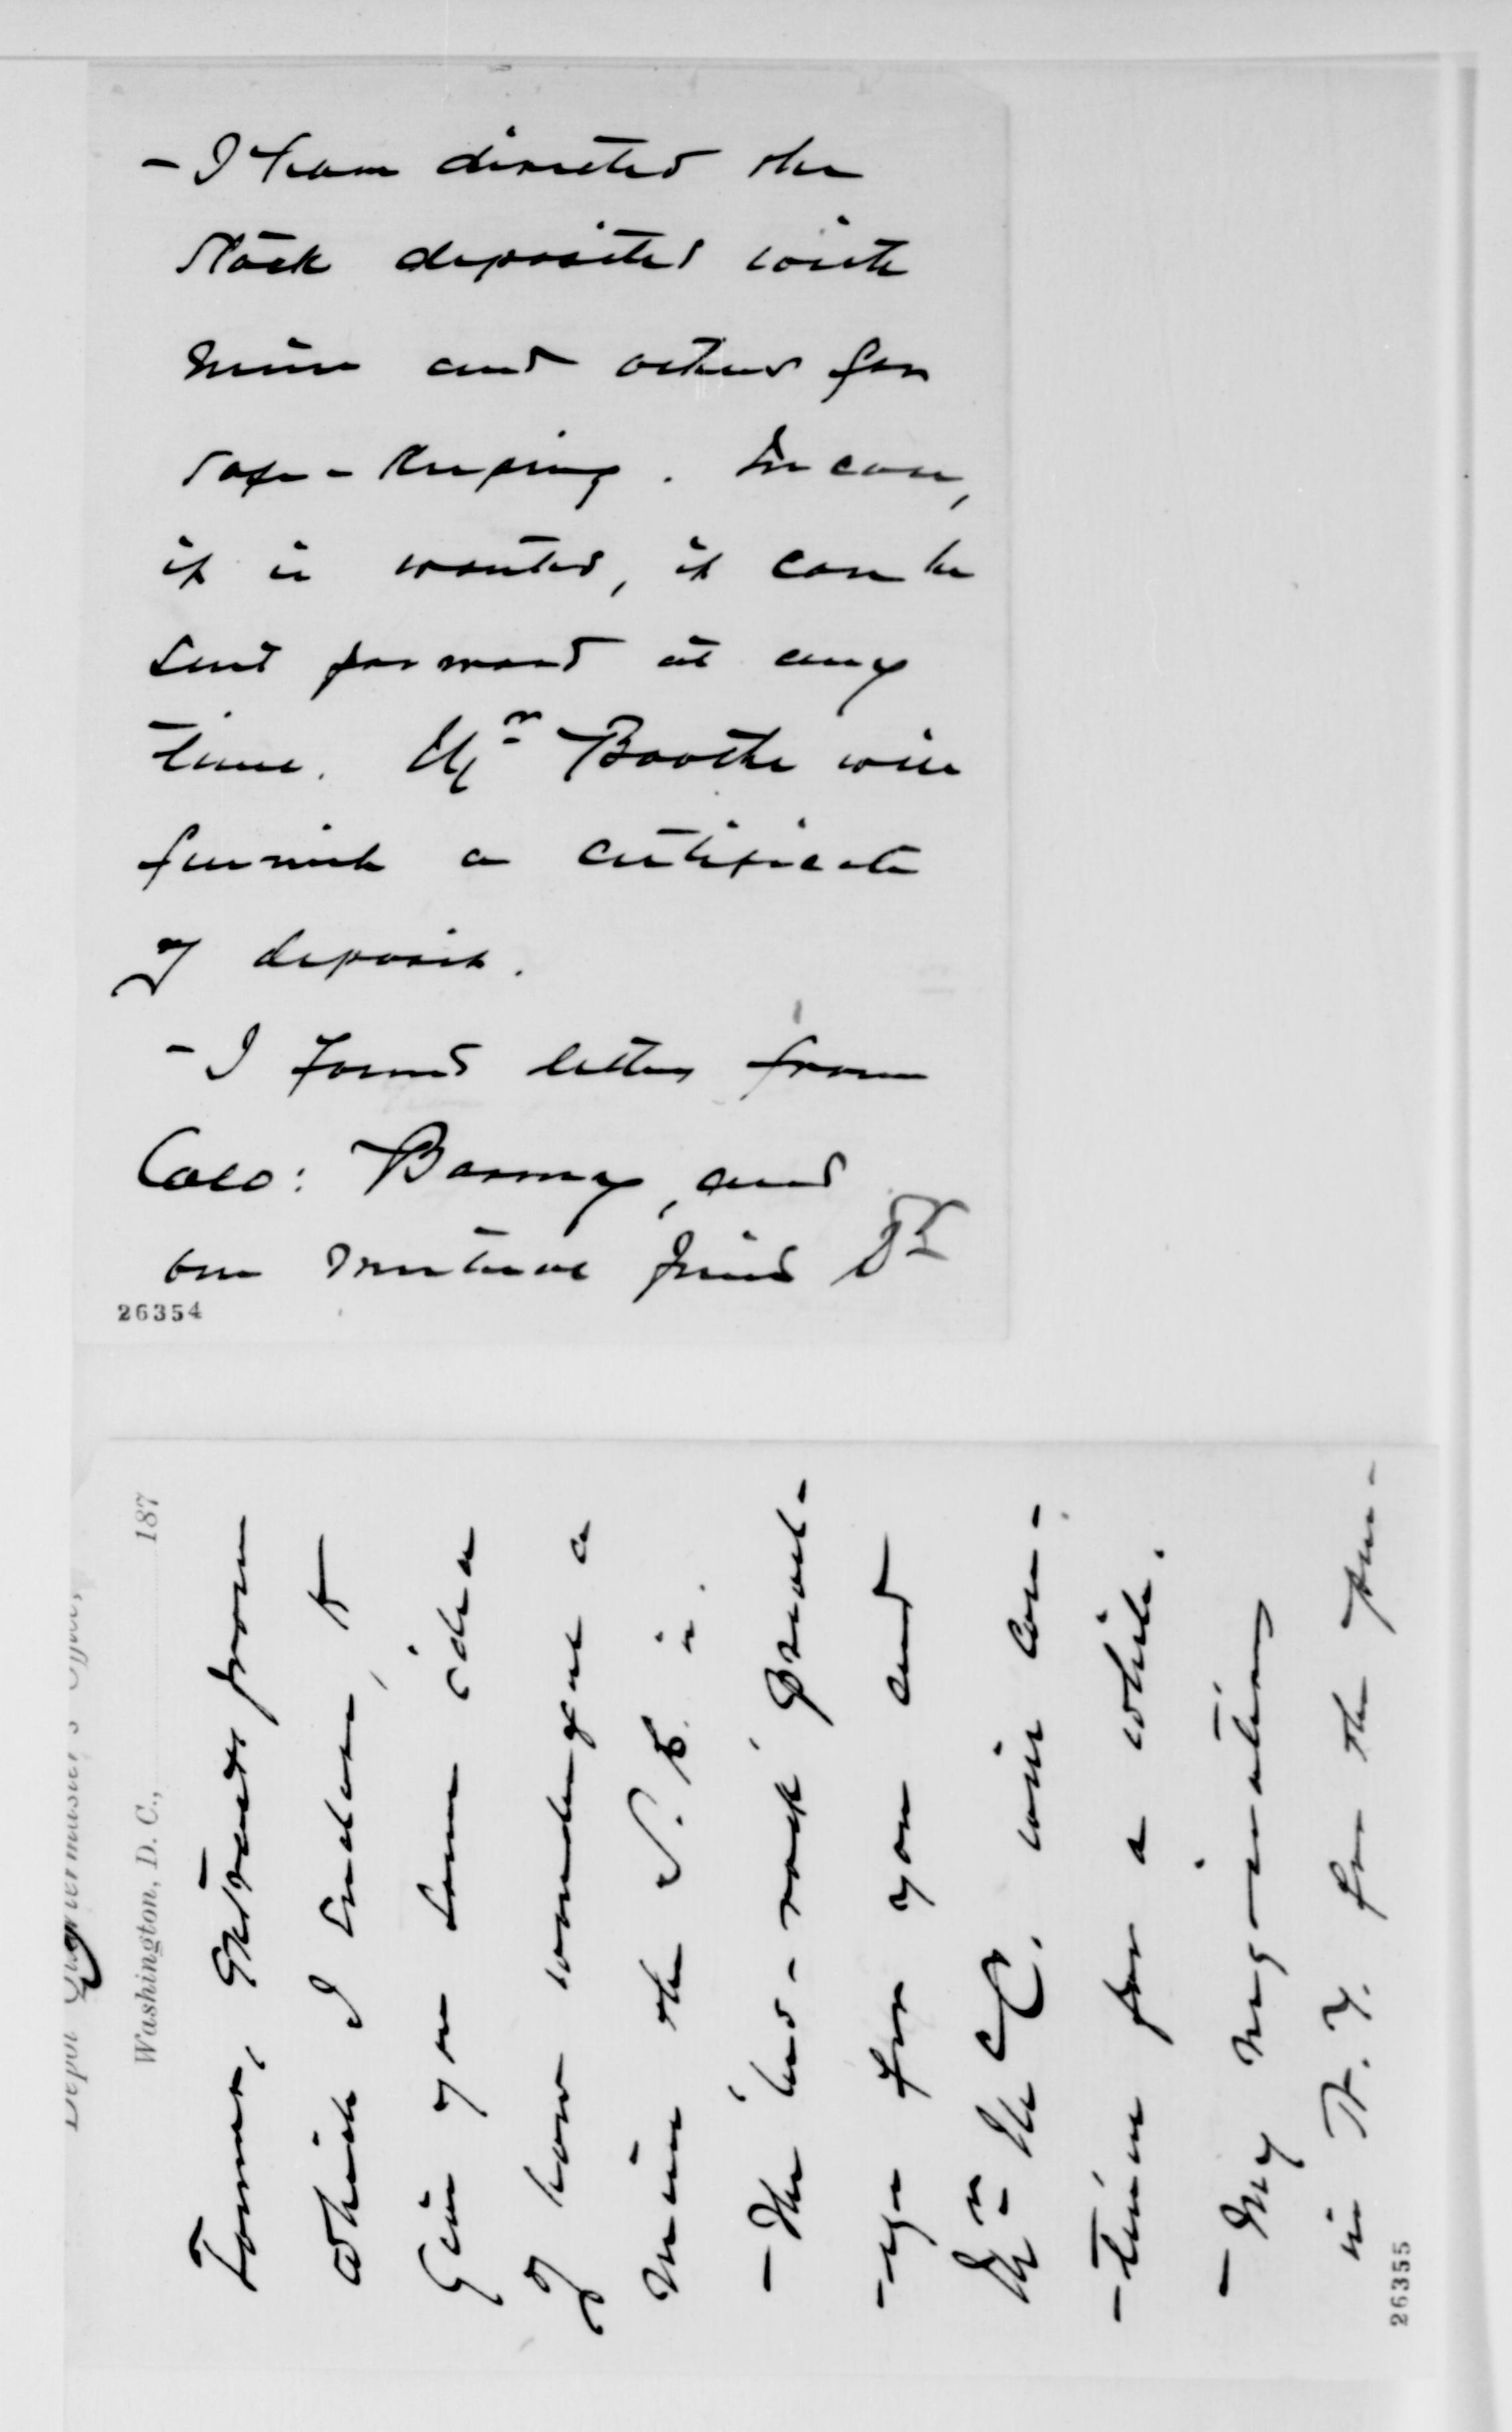 - I have directed the
stock deposited with
mine and others for
safe-keeping. In case,
it is wanted, it can be
sent forward at any
time. Mr Boothe will
furnish a certificate
of deposit.
- I found letters from
Colo: Barney, and
our mutual friend Dr
26354
Depot Quartermaster's Office,
Washington, D. C., 187
Toner, extracts from
which I enclose, to
give you some idea
of how wonderful a
mine the S. B. is.
- The 'bed-rock' privil-
-ege for you and
Mr Mc C. will con-
-tinue for a while.
- My negotiations
in N. Y. for the pur-
26355